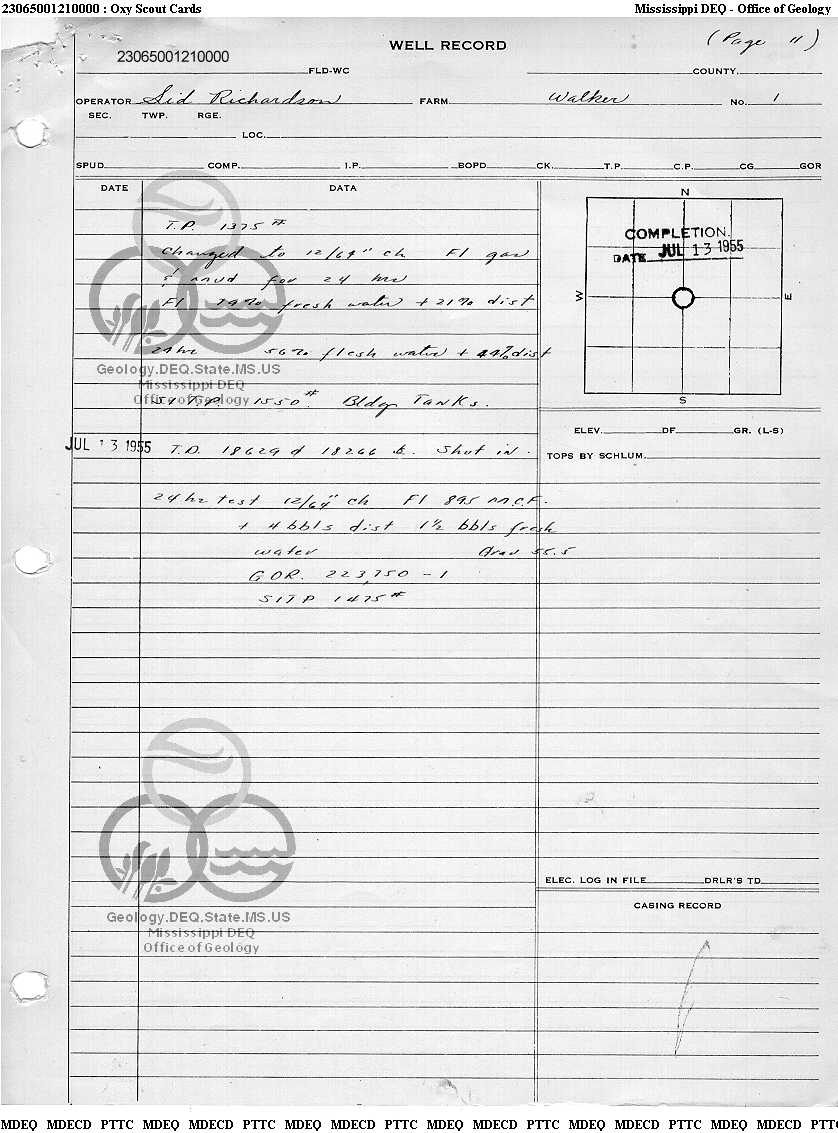 23065001210000 : Oxy Scout Cards Mississippi DEQ - Office of Geology
(Page 11)
WELL RECORD
23065001210000
FLD-WC COUNTY
OPERATOR Sid Richardson FARM Walker No. 1
SEC. TWP. RGE.
LOC.
SPUD COMP. I.P. BOPD CK. T.P. C.P. CG GOR
DATE DATA
T.P. 1375#
Changed to 12/64" ch Fl gas
& mud for 24 hrs
Fl 79% fresh water + 21% dist
24 hr 56% flesh water + 44% dist
T.P. 1550#. Bldg Tanks.
JUL 13 1955 T.D. 18629 d 18266 L. Shut in.
24 hr test 12/64" ch Fl 895 M.C.F.
+ 4 bbls dist 1 1/2 bbls fresh
water Grav 55.5
GOR. 223,750 - 1
SITP 1475#
N
COMPLETION.
DATE JUL 13 1955
W E
S
ELEV. DF. GR. (L-S)
TOPS BY SCHLUM.
ELEC. LOG IN FILE DRLR'S TD
CASING RECORD
Geology.DEQ.State.MS.US
Mississippi DEQ
Office of Geology
Geology.DEQ.State.MS.US
Mississippi DEQ
Office of Geology
MDEQ MDECD PTTC MDEQ MDECD PTTC MDEQ MDECD PTTC MDEQ MDECD PTTC MDEQ MDECD PTTC MDEQ MDECD PTT